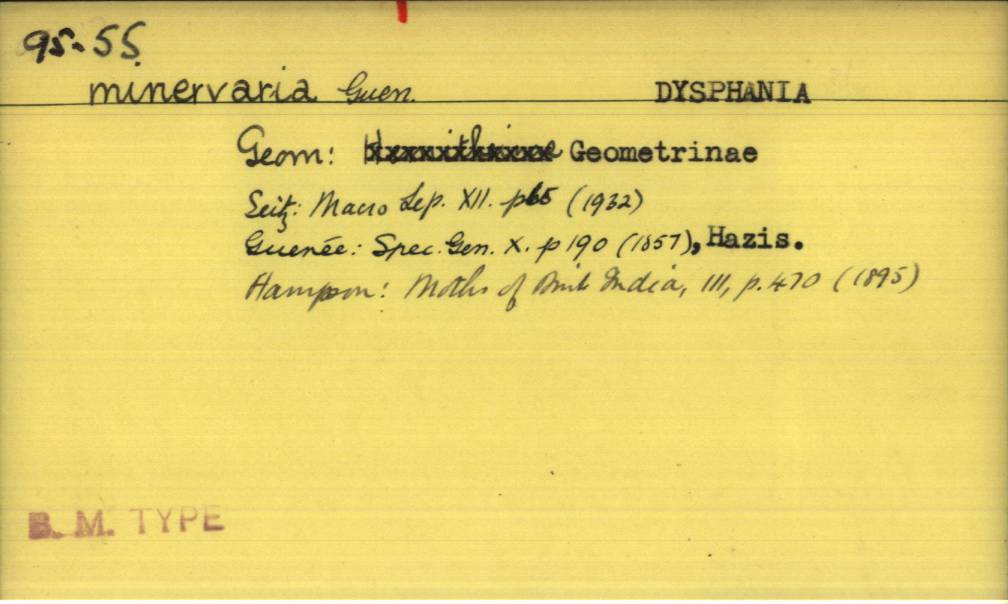 95-55
minervaria Guen. DYSPHANIA
Geom: Geometrinae
Seitz: Macro Lep. XII. p65 (1932)
Guenée: Spec. Gen. X. p 190 (1857), Hazis.
Hampson: Moths of Brit India, III, p. 470 (1895)
B. M. TYPE